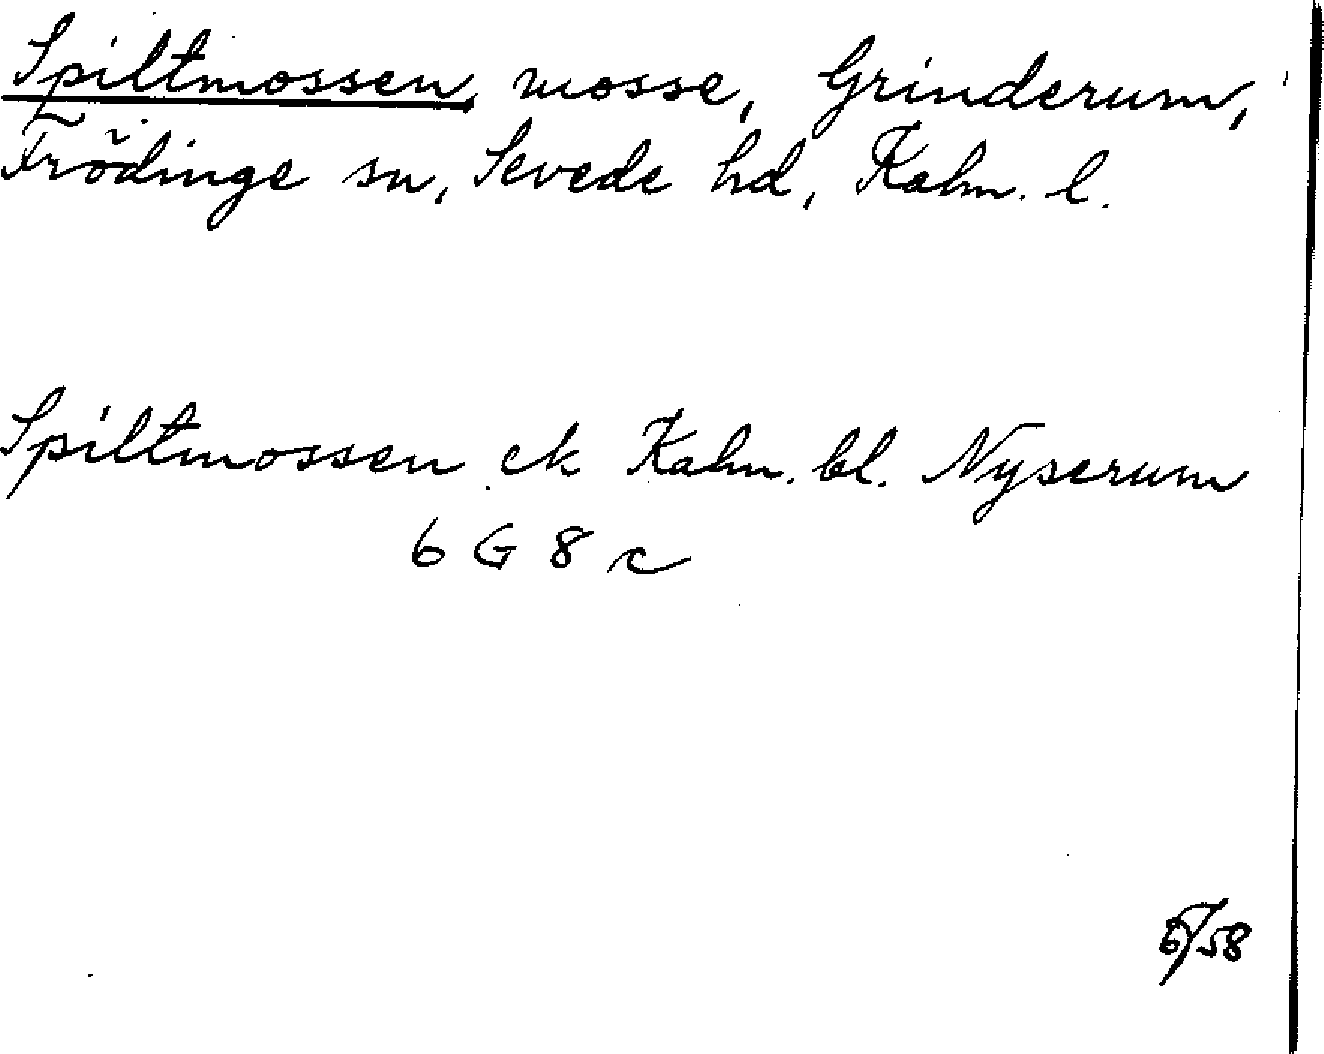 Spiltmossen, mosse, Grinderum,
Frödinge sn, Sevede hd, Kalm. l.
Spiltmossen ek Kalm. bl. Nyserum
6 G 8 c
/58